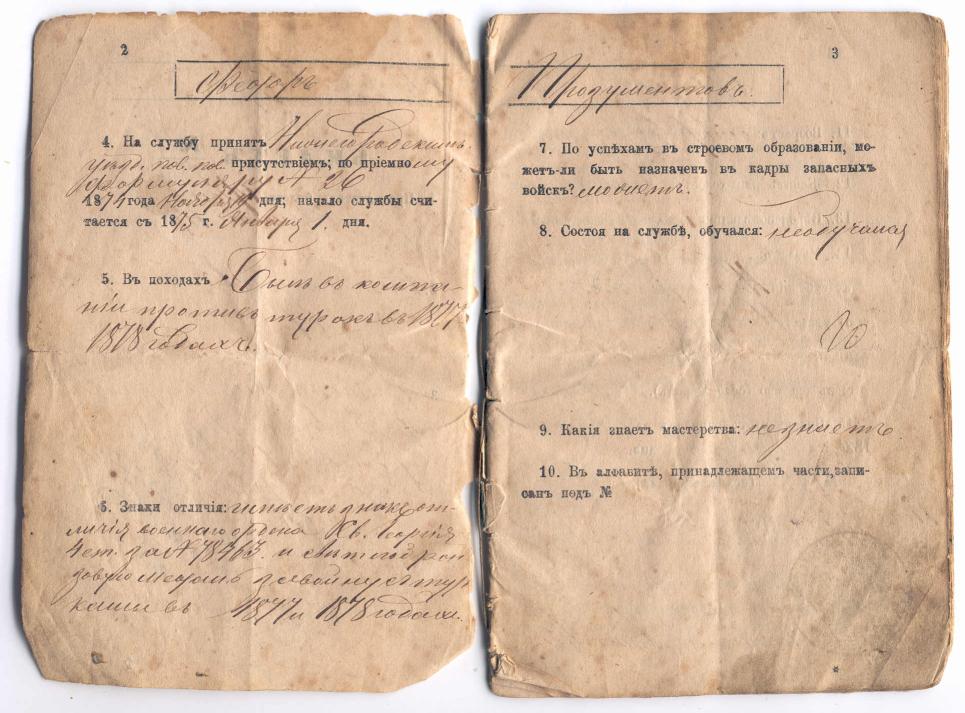 2
Федоръ
4. На службу принятъ
присутствіемъ; по пріемному
Формуляру № 26
1874 года Ноября дня; начало службы счи-
тается съ 1875 г. Января 1. дня.
5. Въ походахъ Былъ въ компа-
ніи противъ турокъ въ 1877
1878 годахъ.
6. Знаки отличія: имѣетъ знакъ от-
личія военнаго ордена Св. Георгія
4 ст. за № 78463. и свѣтлоброн
зовую медаль за войну съ тур
ками въ 1877 и 1878 годахъ.
3
Продументовъ.
7. По успѣхамъ въ строевомъ образованіи, мо-
жетъ-ли быть назначенъ въ кадры запасныхъ
войскъ? можетъ.
8. Состоя на службѣ, обучался: необучался
9. Какія знаетъ мастерства: незнаетъ
10. Въ алфавитѣ, принадлежащемъ части, запи-
санъ подъ №